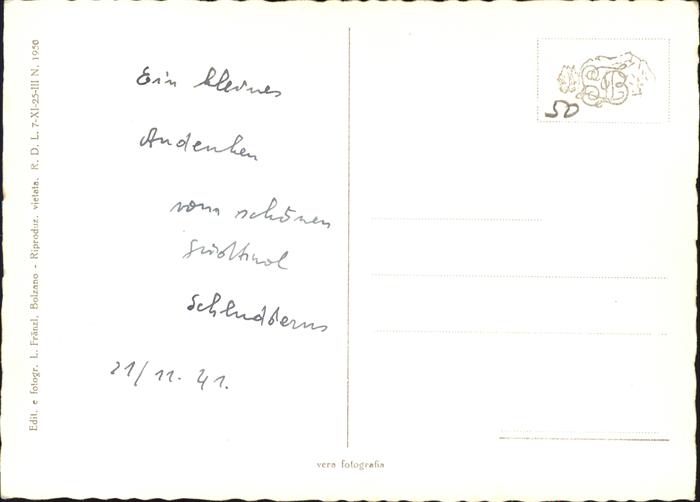 Ein kleines
Andenken
vom schönen
Südtirol
Schluderns
21/11. 41.
50
Edit. e fotogr. L. Fränzl, Bolzano - Riproduz. vietata. R. D. L. 7-XI-25-III N. 1950
vera fotografia